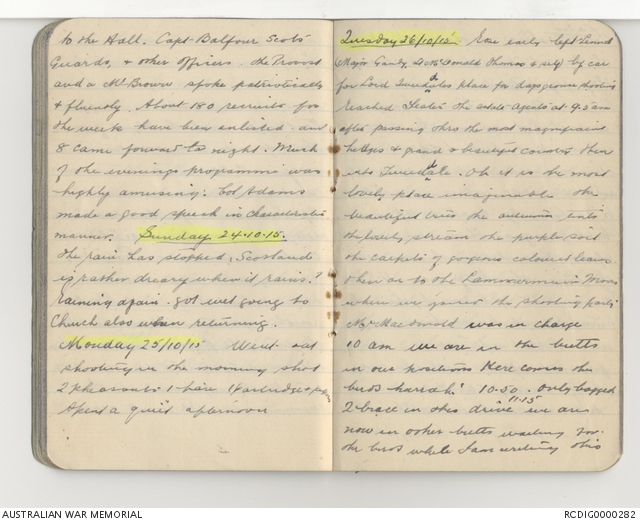 to the Hall. Capt Balfour Scots
Guards, & other Officers. The Provost
and a Mr Brown spoke patriotically
& fluently. About 180 recruits for
the week have been enlisted and
8 came forward to night. Much
of the evenings programme was
highly amusing. Col Adams
made a good speech in characteristic
manner. Sunday 24.10.15.
The rain has stopped, Scotland
is rather dreary when it rains.
Raining again. got wet going to
Church also when returning.
Monday 25/10/15 Went out
shooting in the morning shot
2 pheasants 1 hare 1 partridge
Spent a quiet afternoon
Tuesday 26/10/15. Rose early left
Major McDonald Thomas & self by car
for Lord place for days grouse shooting
reached the estate agents at 9.5 am
after passing thro the most magnificent
hedges & grand & beautiful country then
into Tweedale. Oh it is the most
lovely place imaginable the
beautiful trees the autumn tints
the lovely stream the purple soil
the carpets of gorgeous coloured leaves
then on to the Lammermuir Moors
where we joined the shooting party
Mr MacDonald was in charge
10 am we are in the butts
in our positions Here comes the
birds hurrah! 10.50. Only bagged
2 brace in this drive 11.15 we are
now in other butts waiting for
the birds while I am writing this
AUSTRALIAN WAR MEMORIAL
RCDIG0000282